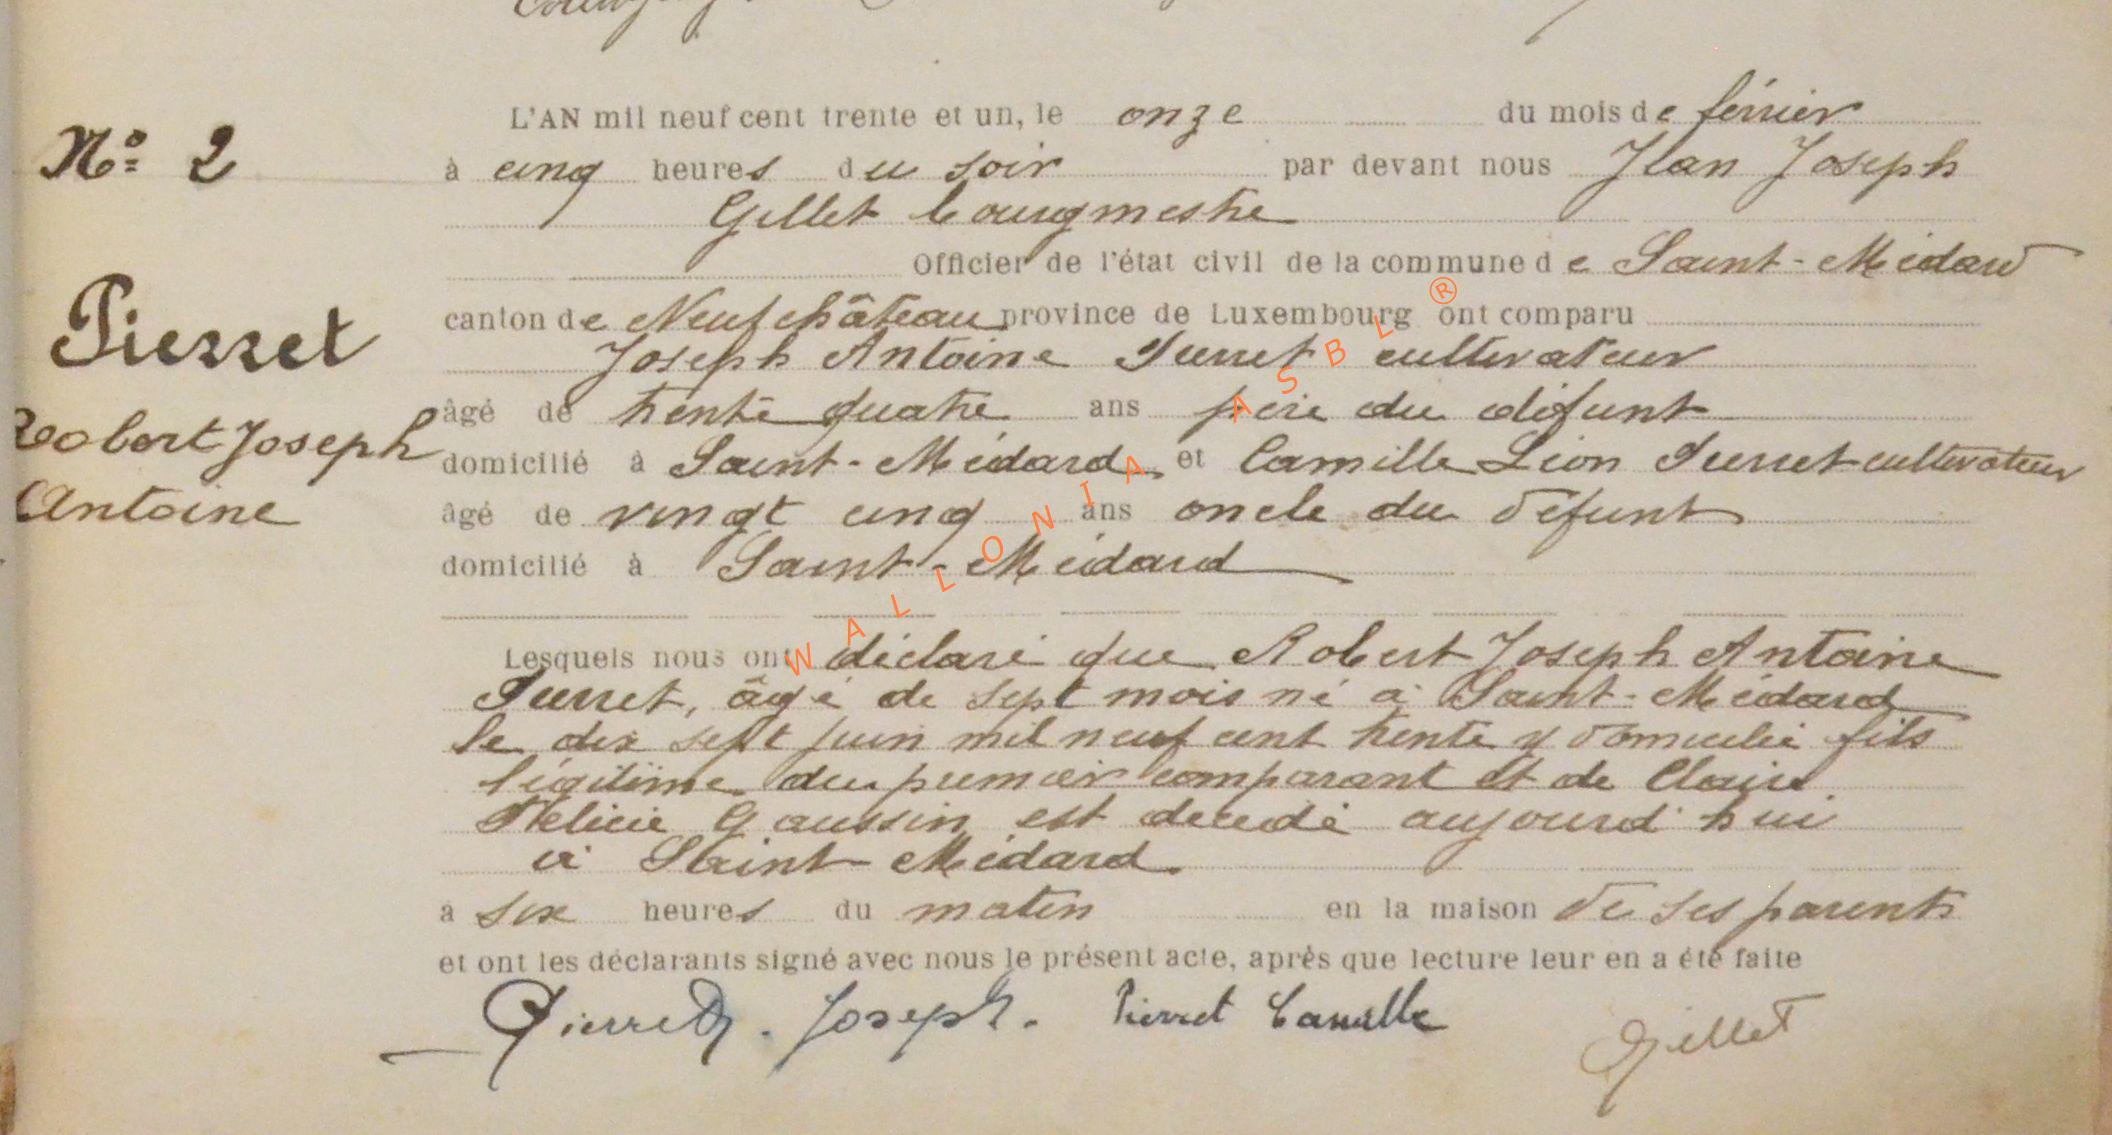 N° 2
Pierret
Robert Joseph
Antoine
L'AN mil neuf cent trente et un, le onze du mois de février
à cinq heures du soir par devant nous Jean Joseph
Gillet bourgmestre
Officier de l'état civil de la commune de Saint-Médard
canton de Neufchâteau province de Luxembourg ont comparu
Joseph Antoine Pierret cultivateur
âgé de trente quatre ans père du défunt
domicilié à Saint-Médard, et Camille Léon Pierret cultivateur
âgé de vingt cinq ans oncle du défunt
domicilié à Saint-Médard
Lesquels nous ont déclaré que Robert Joseph Antoine
Pierret, âgé de sept mois né à Saint-Médard
le dix sept juin mil neuf cent trente y domicilié fils
légitime du premier comparant et de Claire
Félicie Gaussin est décédé aujourd'hui
à Saint Médard
à six heures du matin en la maison de ses parents
et ont les déclarants signé avec nous le présent acte, après que lecture leur en a été faite
Pierret. Joseph. Pierret Camille Gillet
WALLONIA ASBL ®